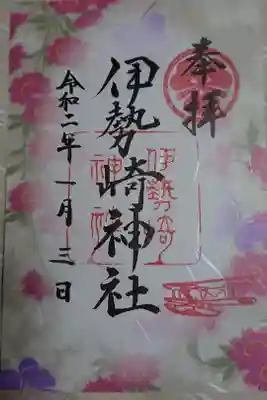 奉拝
伊勢崎神社
伊勢崎
神社
令和二年一月三日